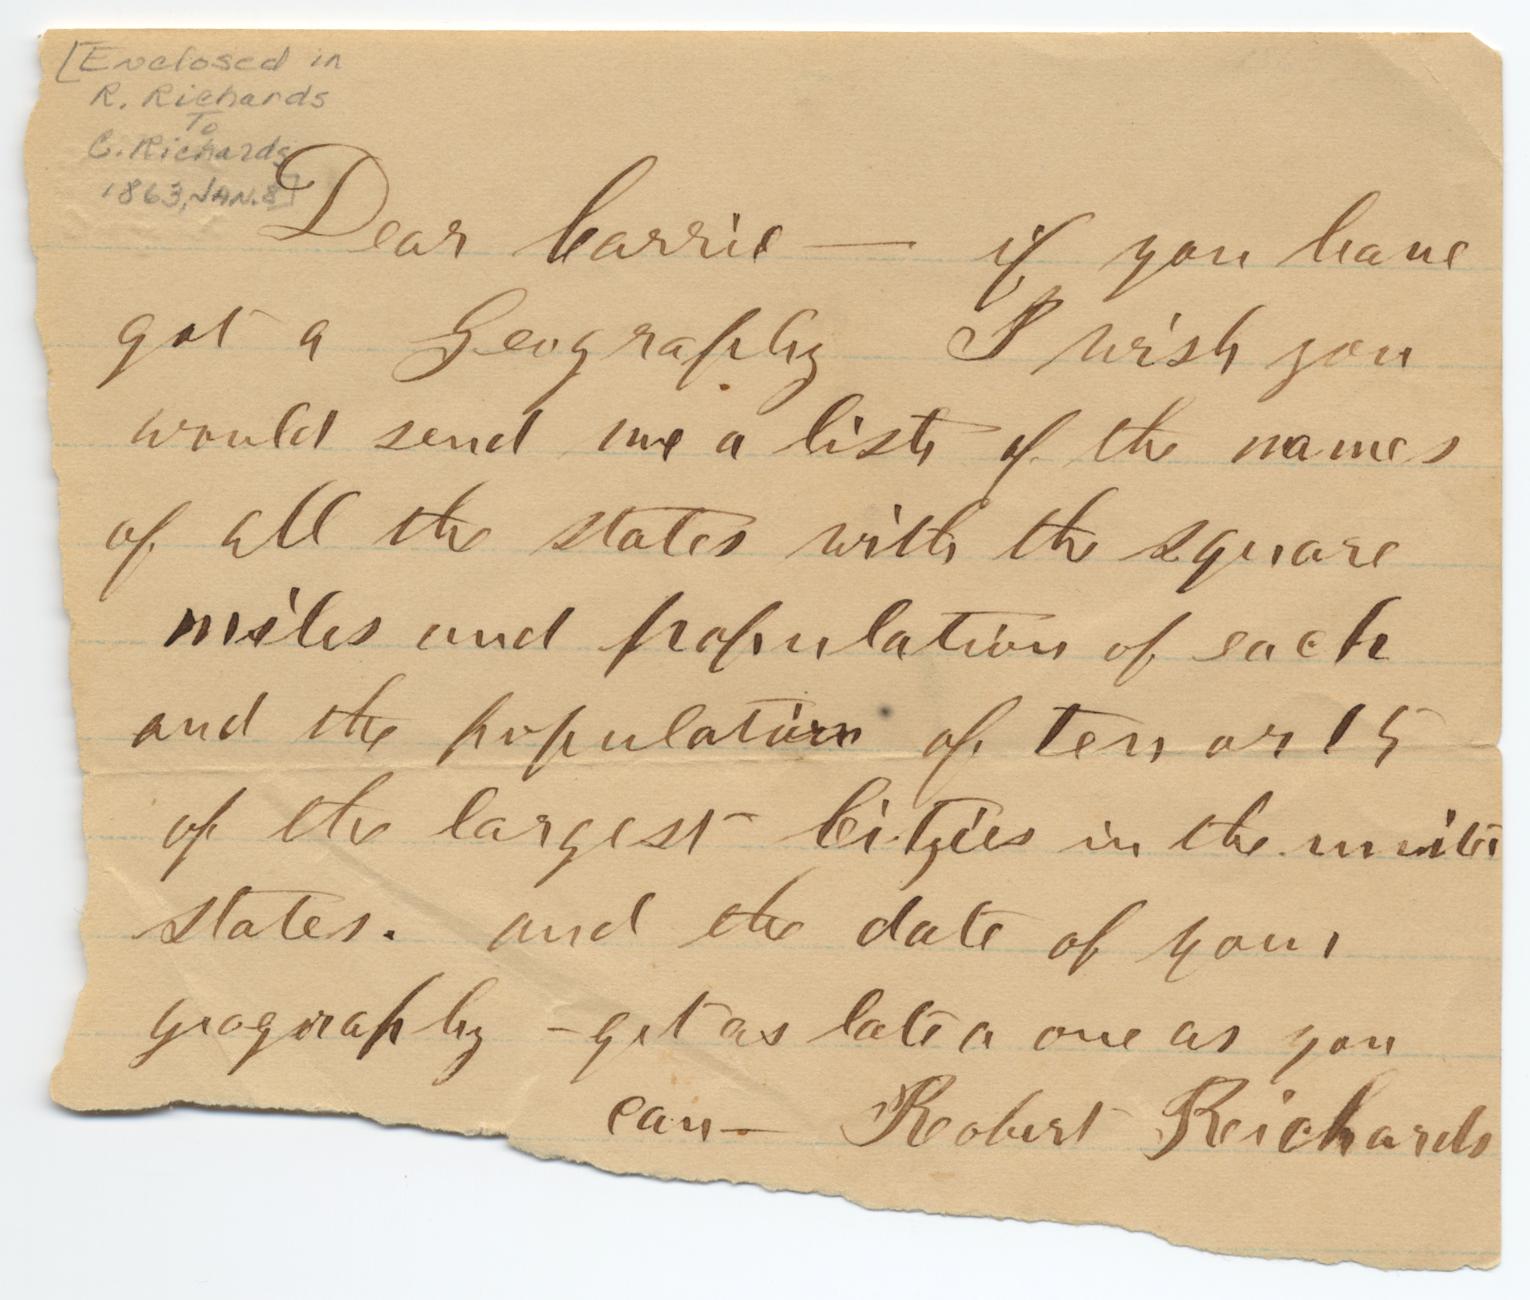 [Enclosed in
R. Richards
To
C. Richards
1863, JAN. 8]
Dear Carrie — if you have
got a Geography I wish you
would send me a list of the names
of all the states with the square
miles and population of each
and the population of ten or 15
of the largest Citties in the unite
states. and the date of your
geography - get as late a one as you
can — Robert Richards